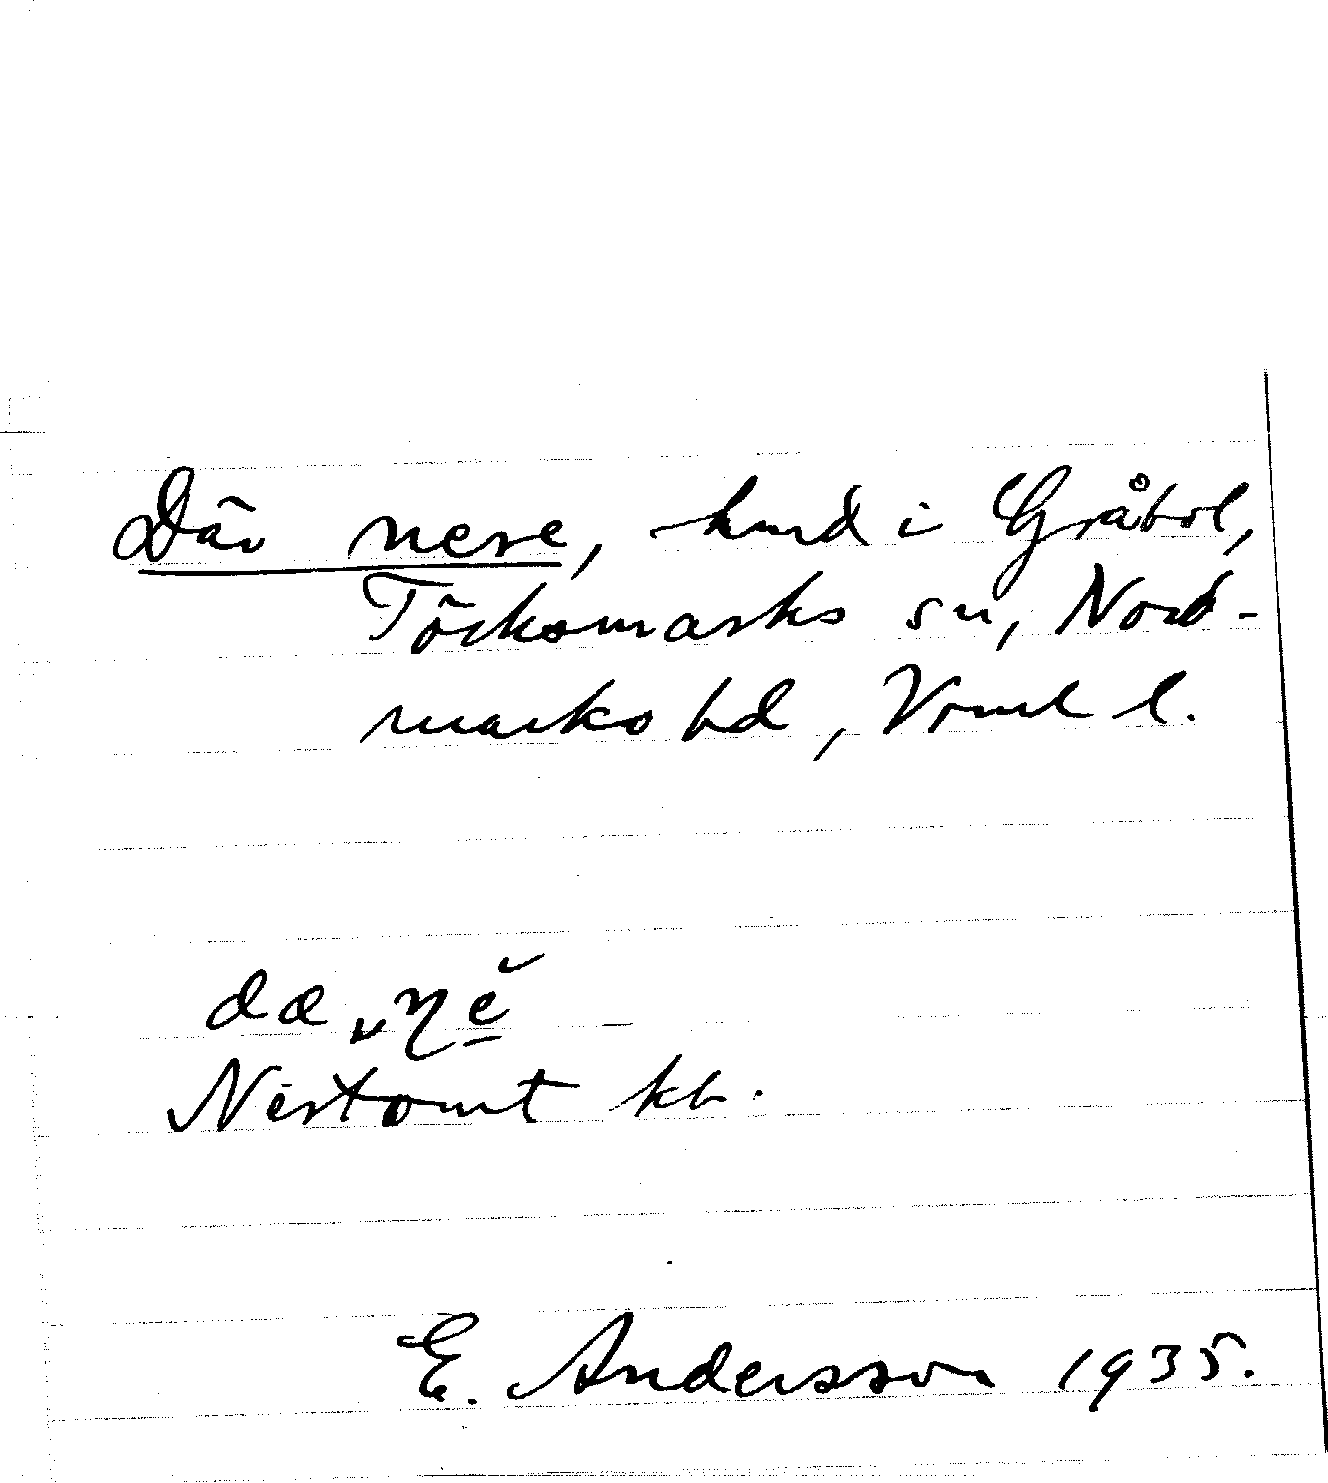 Där nere, hmd i Gråbol,
Töcksmarks sn, Nord-
marks hd, Vrml l.
Nertomt kb.
E. Andersson 1935.